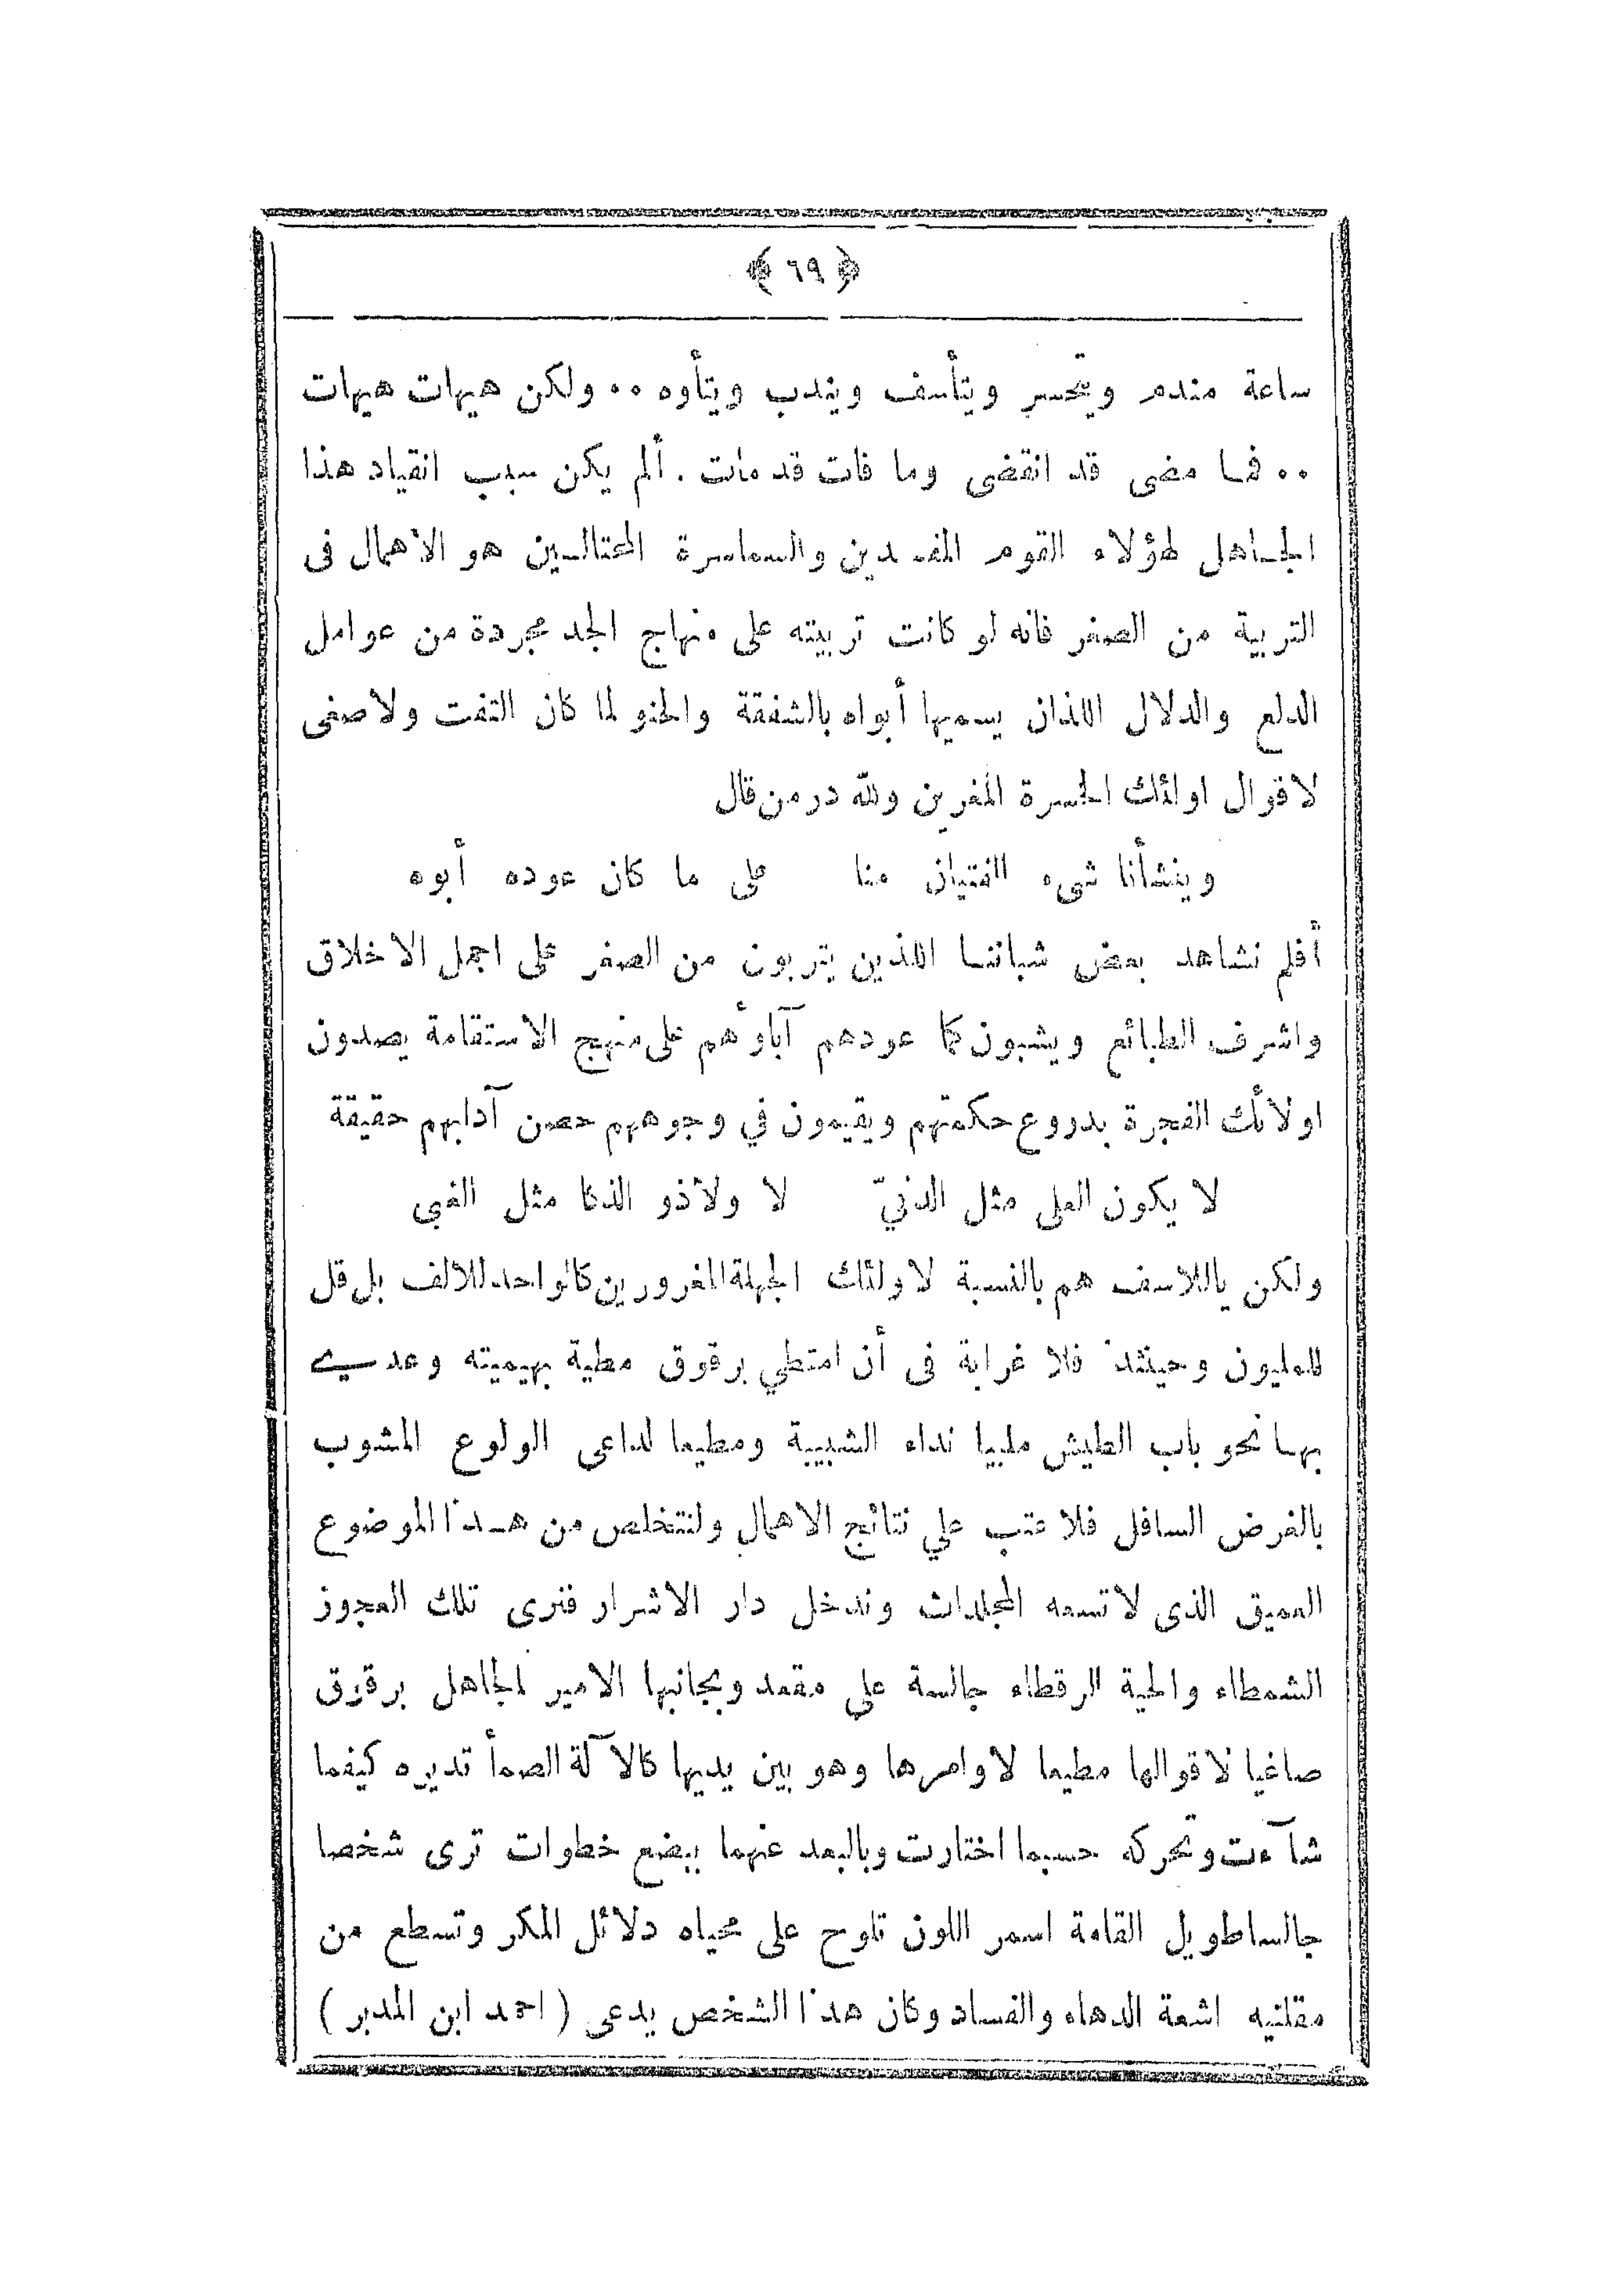 ﴿ ٦٩ ﴾
ساعة مندم ويتحسر ويتأسف ويندب ويتأوه ٠٠ ولكن هيهات هيهات
٠٠ فما مضى قد انقضى وما فات قد مات . ألم يكن سبب انقياد هذا
الجاهل لهؤلاء القوم المفسدين والسماسرة المحتالين هو الاهمال فى
التربية من الصغر فانه لو كانت تربيته على منهاج الجد مجردة من عوامل
الدلع والدلال اللذان يسميها أبواه بالشفقة والحنو لما كان التفت ولاصغى
لاقوال اولئك الخسرة المغرين ولله در من قال
وينشأنا شىء الفتيان منا على ما كان عوده أبوه
أفلم نشاهد بعض شباننا اللذين يتربون من الصغر على اجمل الاخلاق
واشرف الطبائع ويشبون كما عودهم آباؤهم على منهج الاستقامة يصدون
اولائك الفجرة بدروع حكمتهم ويقيمون في وجوههم حصن آدابهم حقيقة
لا يكون العلى مثل الدنيّ لا ولا ذو الذكا مثل الغبى
ولكن ياللاسف هم بالنسبة لاولئك الجهلة المغرورين كالواحد للالف بل قل
للمليون وحينئذ فلا غرابة فى أن امتطي برقوق مطية بهيميته وعدسے
بها نحو باب الطيش ملبيا نداء الشبيبة ومطيعا لداعى الولوع المشوب
بالغرض السافل فلا عتب علي نتائج الاهمال ولنتخلص من هذا الموضوع
العميق الذى لا تسعه المجلدات وندخل دار الاشرار فنرى تلك العجوز
الشمطاء والحية الرقطاء جالسة على مقعد وبجانبها الامير الجاهل برقوق
صاغيا لاقوالها مطيعا لاوامرها وهو بين يديها كالآلة الصمأ تديره كيفما
شآءت وتحركه حسبما اختارت وبالبعد عنهما ببضع خطوات ترى شخصا
جالسا طويل القامة اسمر اللون تلوح على محياه دلائل المكر وتسطع من
مقلتيه اشعة الدهاه والفساد وكان هذا الشخص يدعى ( احمد ابن المدبر )